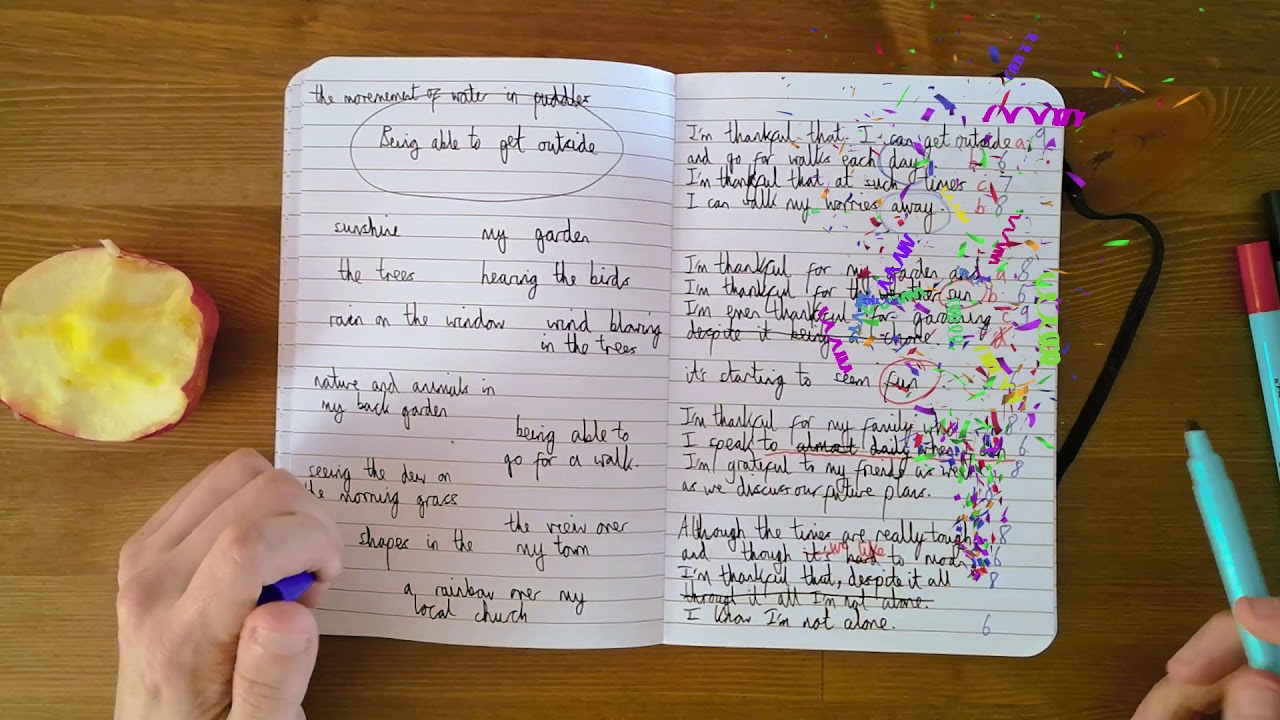 the movement of water in puddles
Being able to get outside
sunshine my garden
the trees hearing the birds
rain on the window wind blowing
in the trees
nature and animals in
my back garden
being able to
go for a walk.
seeing the dew on
the morning grass
the view over
shapes in the my town
a rainbow over my
local church
I'm thankful that I can get outside a. 9
and go for walks each day b 6
I'm thankful that at such times c 7
I can walk my worries away. b 8
I'm thankful for my garden and a. 8
I'm thankful for the sun b 6
I'm even thankful for gardening 9
despite it being a chore
it's starting to seem fun
I'm thankful for my family who 8
I speak to almost daily when I can 6
I'm grateful to my friends as well 8
as we discuss our future plans.
Although the times are really tough 8
and though it's hard to moan 6
I'm thankful that, despite it all 8
through it all I'm not alone.
I know I'm not alone. 6